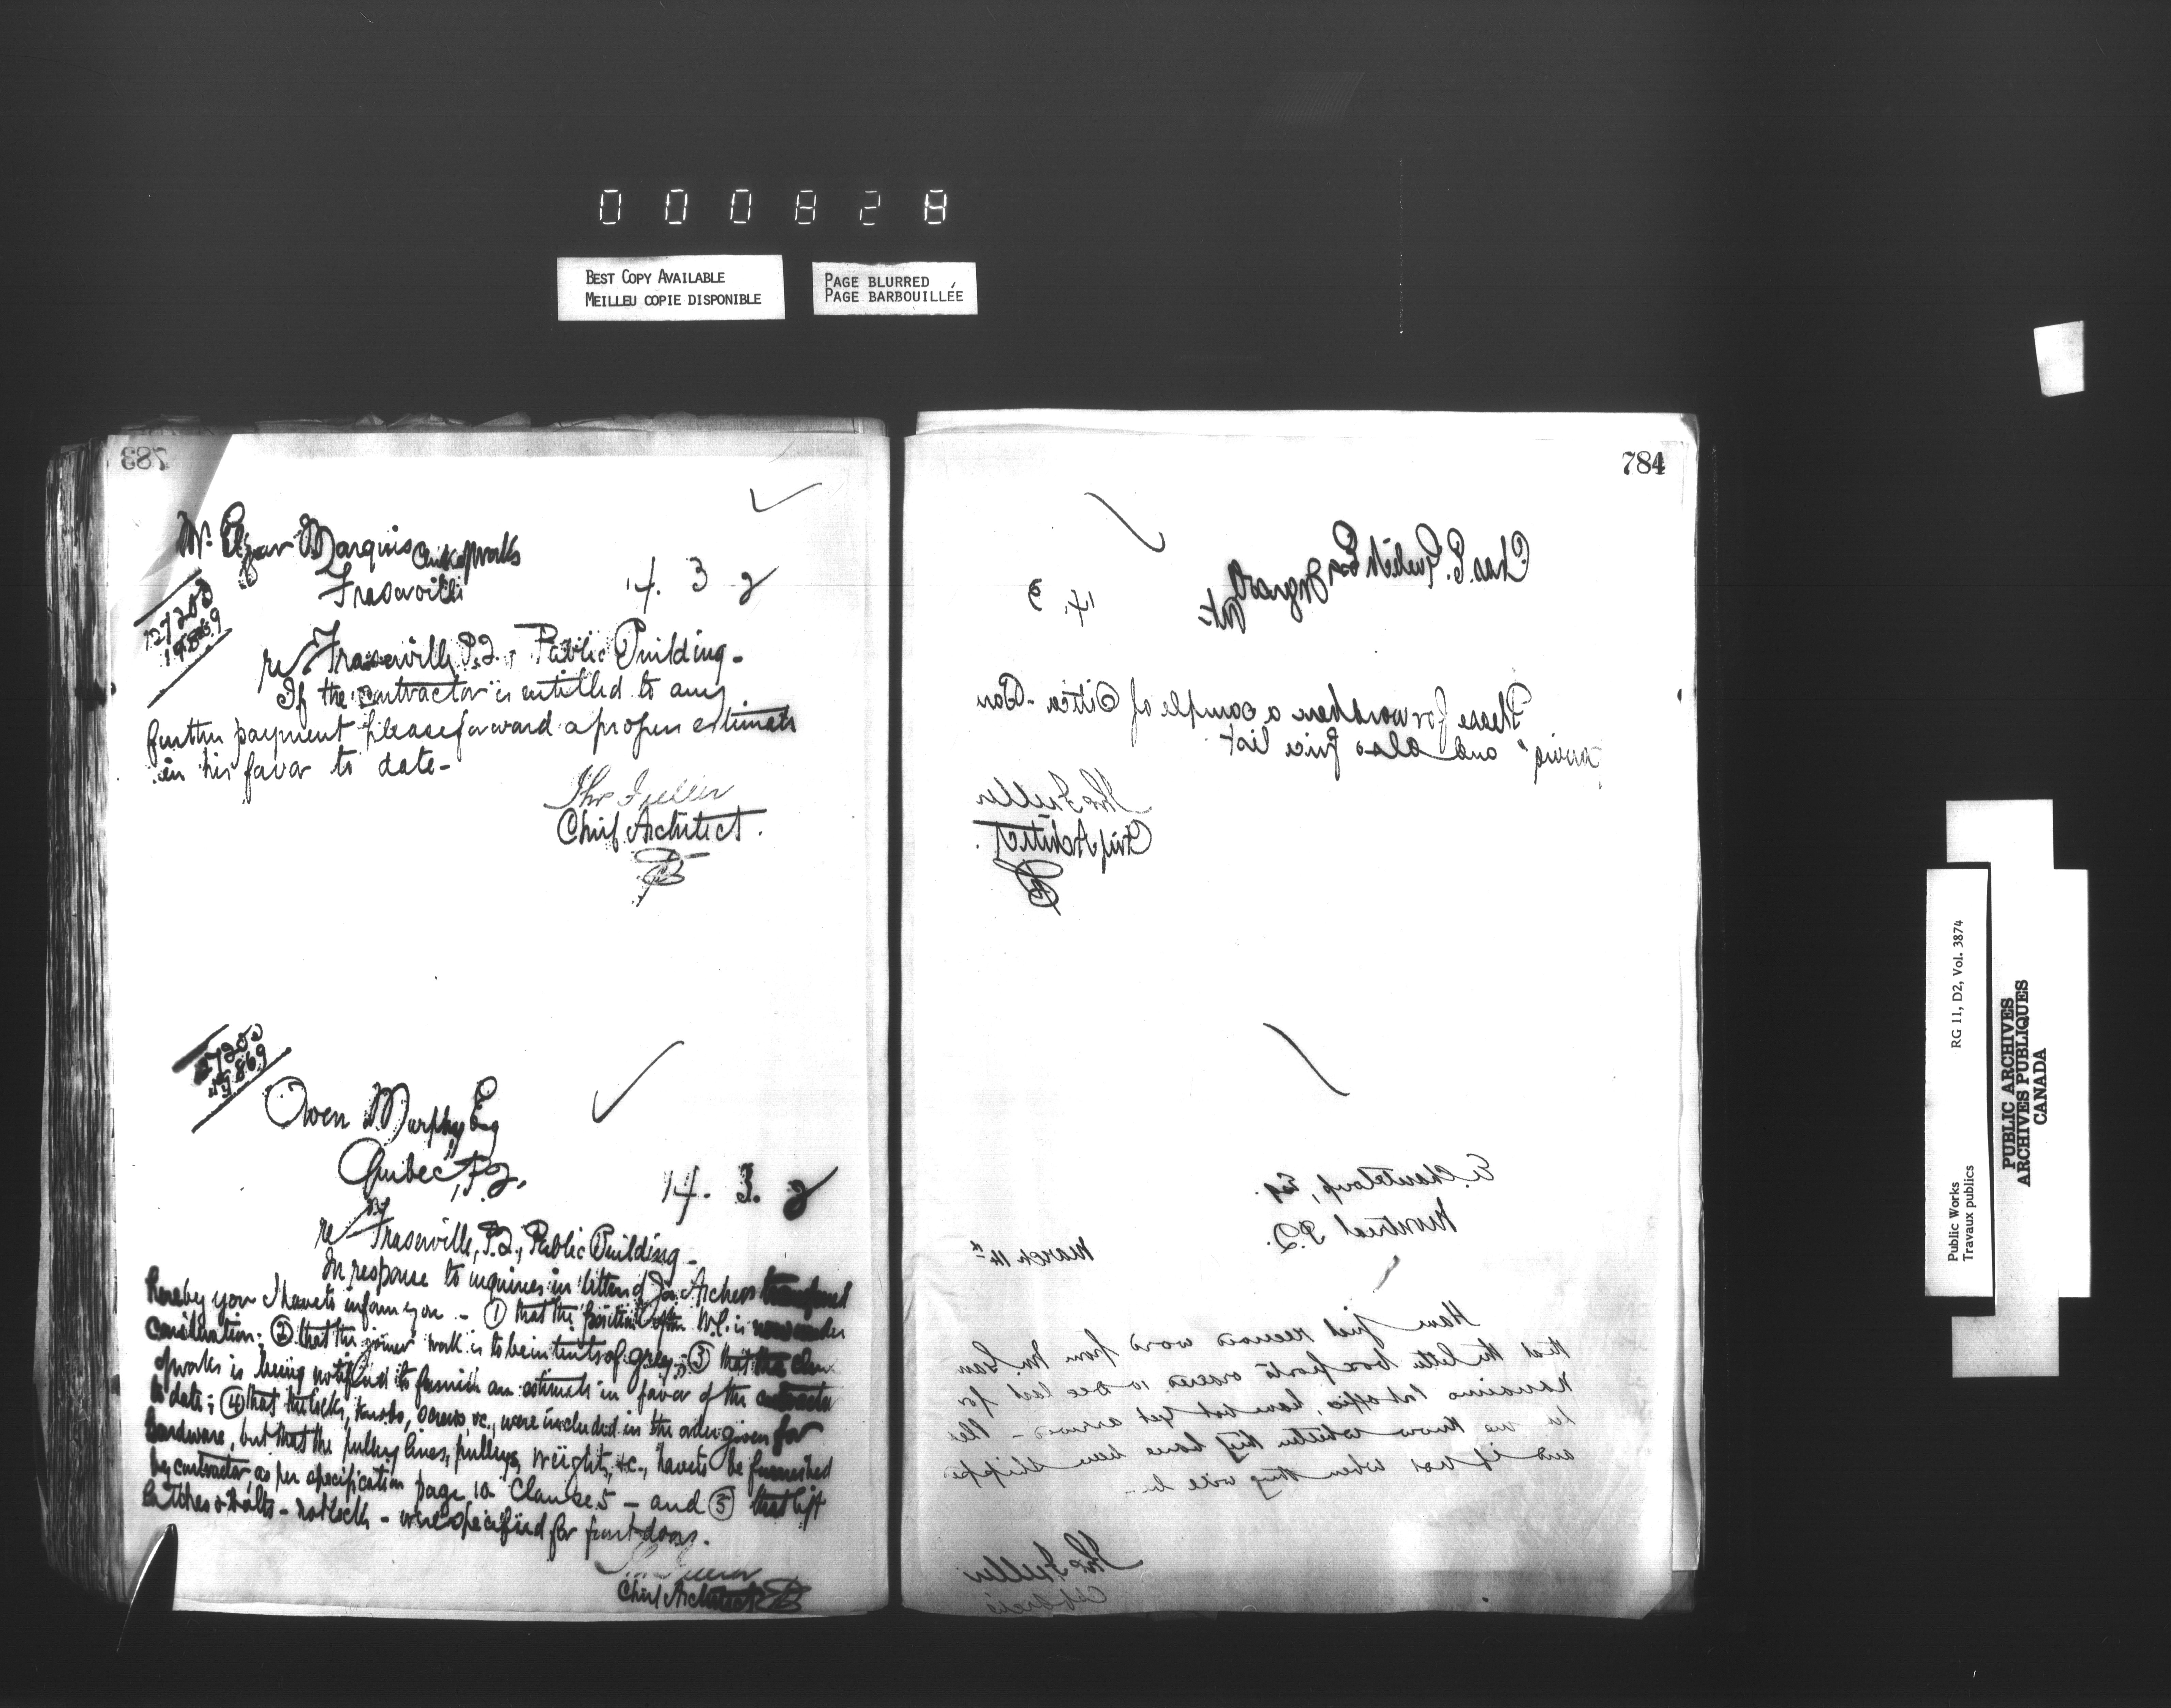 000828
BEST COPY AVAILABLE
MEILLEU COPIE DISPONIBLE
PAGE BLURRED
PAGE BARBOUILLÉE
783
Mr. Elzear Marquis Clerk of Works
Fraserville
14. 3 2
re Fraserville, P.Q., Public Building -
If the contractor is entitled to any
further payment please forward a proper estimate
in his favor to date -
Thos Fuller
Chief Architect.
Owen Murphy Esq
Quebec, P.Q.
14. 3. 2
re Fraserville, P.Q., Public Building -
In response to inquiries in letter of Archer transferred
here by you I have to inform you - ① that the position of the W.C. is now under
consideration; ② that the joiners' work is to be in tints of grey; ③ that the clerk
of works is being notified to furnish an estimate in favor of the contractor
to date; ④ that the locks, knobs, screws, &c., were included in the order given for
hardware, but that the pulley lines, pulleys, weights, &c., have to be furnished
by contractor as per specification page 10 Clause 5 - and ⑤ that lift
latches & bolts - not locks - were specified for front doors.
Thos Fuller
Chief Architect
784
Chas. E.
14 3
Please forward here a sample of
paving" and also price list
Thos Fuller
Chief Architect.
E. Chanteloup, Esq.
Montreal P.Q.
March 14th
Have just received word from
that the letter box fronts ordered 10 Dec last for
Nanaimo Post office, have not yet arrived -
let me know whether they have been shipped
and if not when they will be -
Thos Fuller
Public Works
Travaux publics
RG 11, D2, Vol. 3874
PUBLIC ARCHIVES
ARCHIVES PUBLIQUES
CANADA